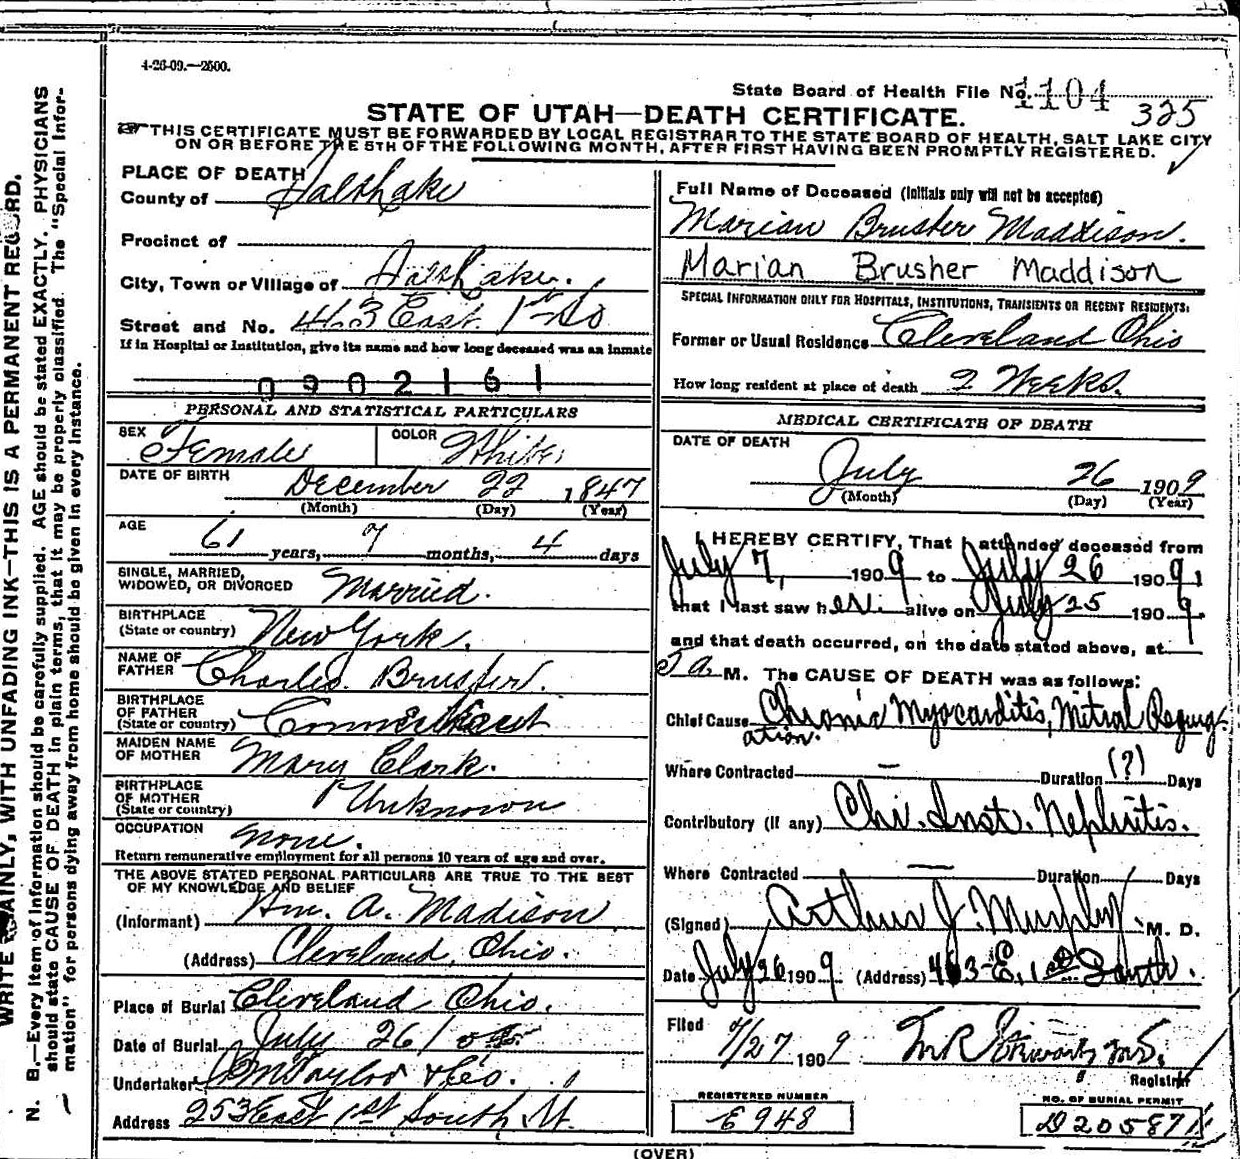 4-26-09.—2500.
State Board of Health File No. 1104 325
STATE OF UTAH—DEATH CERTIFICATE.
THIS CERTIFICATE MUST BE FORWARDED BY LOCAL REGISTRAR TO THE STATE BOARD OF HEALTH, SALT LAKE CITY
ON OR BEFORE THE 5TH OF THE FOLLOWING MONTH, AFTER FIRST HAVING BEEN PROMPTLY REGISTERED.
WRITE PLAINLY, WITH UNFADING INK—THIS IS A PERMANENT RECORD.
N. B.—Every item of information should be carefully supplied. AGE should be stated EXACTLY. PHYSICIANS
should state CAUSE OF DEATH in plain terms, that it may be properly classified. The "Special Infor-
mation" for persons dying away from home should be given in every instance.
PLACE OF DEATH
County of Salt Lake
Precinct of
City, Town or Village of Salt Lake.
Street and No. 463 East 1st So
If in Hospital or Institution, give its name and how long deceased was an inmate
0902161
PERSONAL AND STATISTICAL PARTICULARS
SEX Female COLOR White
DATE OF BIRTH December 22 1847
(Month) (Day) (Year)
AGE 61 years, 7 months, 4 days
SINGLE, MARRIED,
WIDOWED, OR DIVORCED Married.
BIRTHPLACE
(State or country) New York.
NAME OF
FATHER Charles Brusher.
BIRTHPLACE
OF FATHER
(State or country) Connecticut
MAIDEN NAME
OF MOTHER Mary Clark.
BIRTHPLACE
OF MOTHER
(State or country) Unknown
OCCUPATION none.
Return remunerative employment for all persons 10 years of age and over.
THE ABOVE STATED PERSONAL PARTICULARS ARE TRUE TO THE BEST
OF MY KNOWLEDGE AND BELIEF
(Informant) Wm. A. Madison
(Address) Cleveland, Ohio.
Place of Burial Cleveland Ohio.
Date of Burial July 26 190
Undertaker Taylor & Co.
Address 253 East 1st South St.
Full Name of Deceased (Initials only will not be accepted)
Marian Brusher Maddison.
Marian Brusher Maddison
SPECIAL INFORMATION ONLY FOR HOSPITALS, INSTITUTIONS, TRANSIENTS OR RECENT RESIDENTS:
Former or Usual Residence Cleveland Ohio
How long resident at place of death 2 Weeks.
MEDICAL CERTIFICATE OF DEATH
DATE OF DEATH
July 26 1909
(Month) (Day) (Year)
I HEREBY CERTIFY, That I attended deceased from
July 7, 1909 to July 26 1909
that I last saw her alive on July 25 1909.
and that death occurred, on the date stated above, at
5 a. M. The CAUSE OF DEATH was as follows:
Chief Cause Chronic Myocarditis, Mitral Regurg-
ation.
Where Contracted — Duration (?) Days
Contributory (if any) Chr. Inst. Nephritis.
Where Contracted — Duration Days
(Signed) Arthur J. Murphy M. D.
Date July 26 1909 (Address) 463 E. 1st South.
Filed 7/27 1909
Registrar
REGISTERED NUMBER
E 948
NO. OF BURIAL PERMIT
D 20587
(OVER)